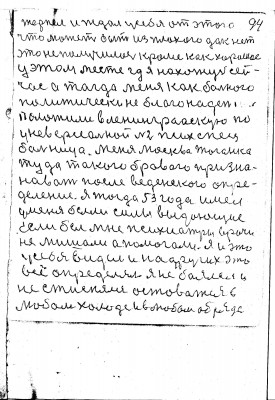 терпел и ждал у себя от этого 94
что может быть из плохого дак нет
это не получилось кроме как хорошае
у этом месте где я нахожусь сей-
час а тагда меня как балного
политически не благонадеж
положили в ленинградскую по
укеверсалной №2 психспец
балница. меня Москва Таганка
туда такого бравага призна-
нават после веденского опре-
деление. Я тогда 53 года имел
у меня были силы выдающие
если бы мне психиатры врачи
не мишали а помогали. Я и это
у себя видил и на других это
всё определял я не баялся и
не стиснялся оставатся в
любом холоде и в любом обряде